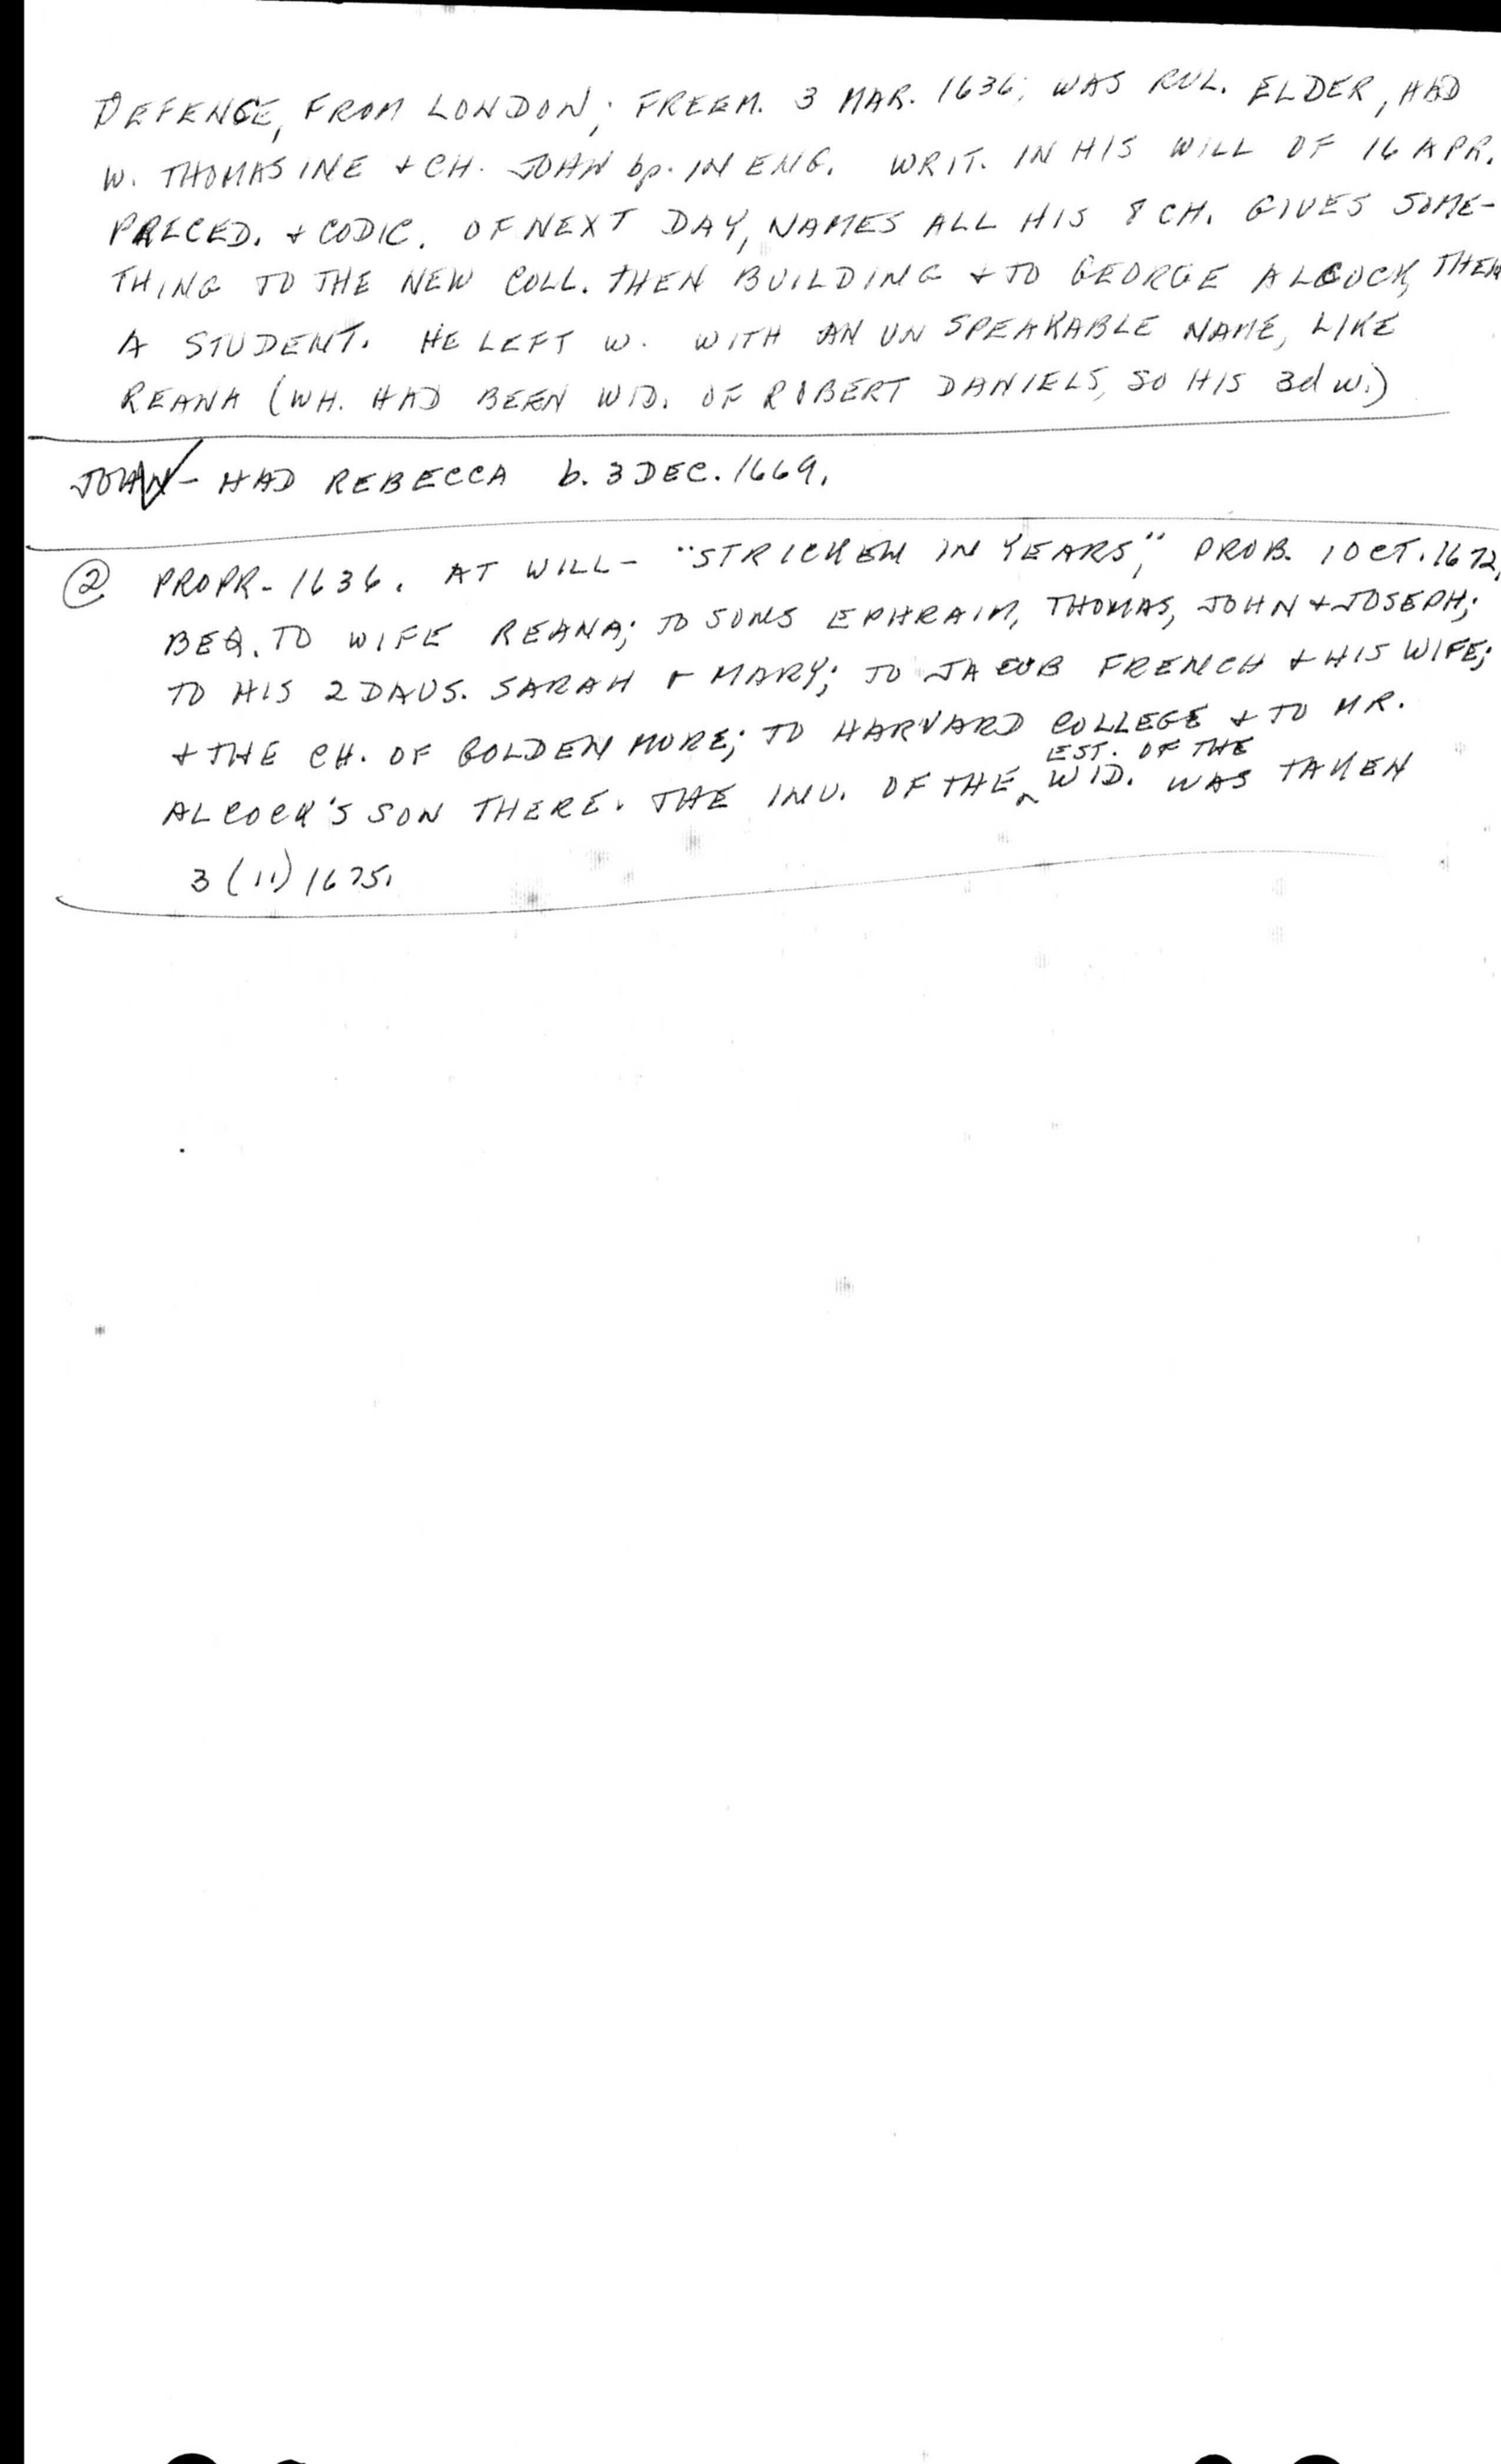 DEFENCE, FROM LONDON; FREEM. 3 MAR. 1636; WAS RUL. ELDER, HAD
W. THOMASINE + CH. JOHN bp. IN ENG. WRIT. IN HIS WILL OF 16 APR.
PRECED. + CODIC. OF NEXT DAY, NAMES ALL HIS 8 CH. GIVES SOME-
THING TO THE NEW COLL. THEN BUILDING + TO GEORGE ALCOCK, THEN
A STUDENT. HE LEFT W. WITH AN UNSPEAKABLE NAME, LIKE
REANA (WH. HAD BEEN WID. OF ROBERT DANIELS, SO HIS 3d W.)
JOHN - HAD REBECCA b. 3 DEC. 1669.
② PROPR- 1636. AT WILL- "STRICKEN IN YEARS", PROB. 1 OCT. 1672,
BEQ. TO WIFE REANA; TO SONS EPHRAIM, THOMAS, JOHN + JOSEPH;
TO HIS 2 DAUS. SARAH + MARY; TO JACOB FRENCH + HIS WIFE;
+ THE CH. OF GOLDEN MORE; TO HARVARD COLLEGE + TO MR.
ALCOCK'S SON THERE. THE INV. OF THE ^ EST. OF THE WID. WAS TAKEN
3 (11) 1675.